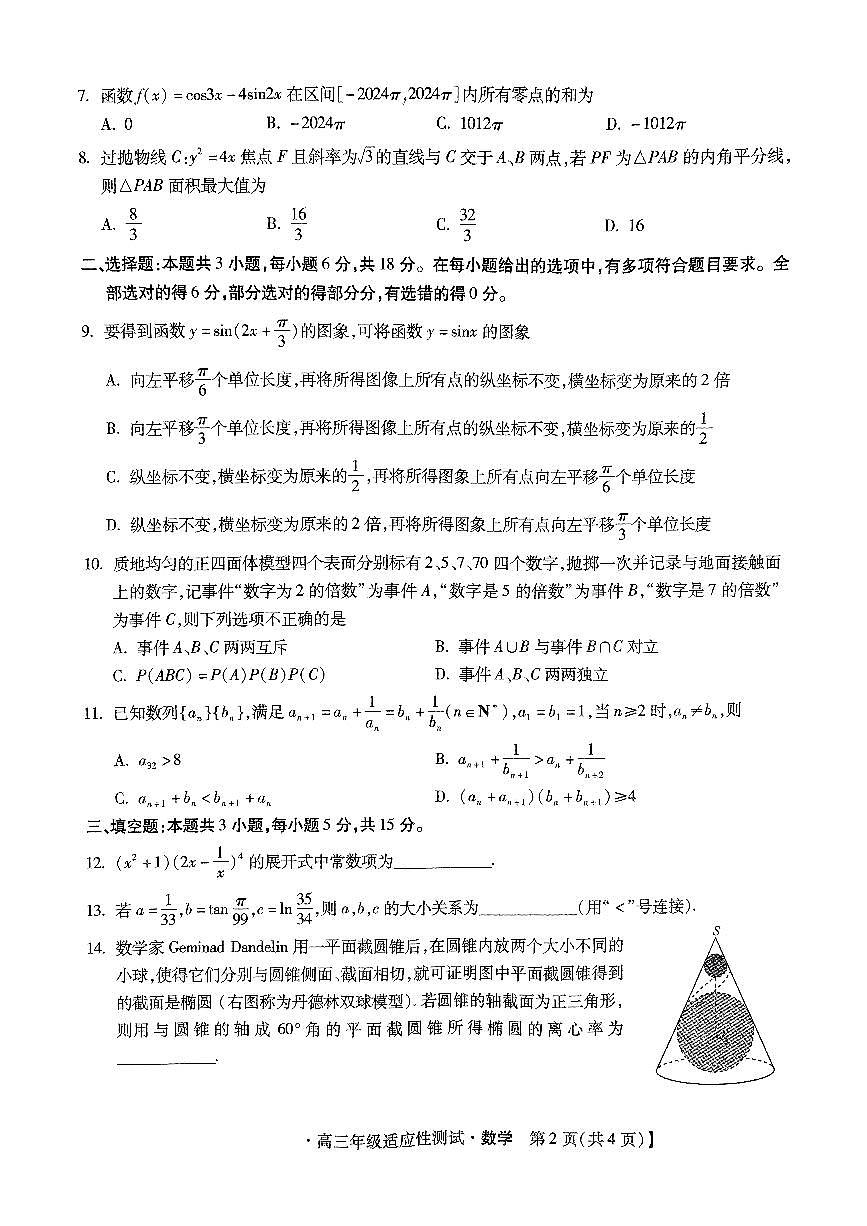 7. 函数f(x)=cos3x-4sin2x在区间[-2024π,2024π]内所有零点的和为
A. 0 B. -2024π C. 1012π D. -1012π
8. 过抛物线C:y²=4x焦点F且斜率为√3的直线与C交于A、B两点,若PF为△PAB的内角平分线,
则△PAB面积最大值为
A. 8/3 B. 16/3 C. 32/3 D. 16
二、选择题:本题共3小题,每小题6分,共18分。在每小题给出的选项中,有多项符合题目要求。全
部选对的得6分,部分选对的得部分分,有选错的得0分。
9. 要得到函数y=sin(2x+π/3)的图象,可将函数y=sinx的图象
A. 向左平移π/6个单位长度,再将所得图像上所有点的纵坐标不变,横坐标变为原来的2倍
B. 向左平移π/3个单位长度,再将所得图像上所有点的纵坐标不变,横坐标变为原来的1/2
C. 纵坐标不变,横坐标变为原来的1/2,再将所得图象上所有点向左平移π/6个单位长度
D. 纵坐标不变,横坐标变为原来的2倍,再将所得图象上所有点向左平移π/3个单位长度
10. 质地均匀的正四面体模型四个表面分别标有2、5、7、70四个数字,抛掷一次并记录与地面接触面
上的数字,记事件“数字为2的倍数”为事件A,“数字是5的倍数”为事件B,“数字是7的倍数”
为事件C,则下列选项不正确的是
A. 事件A、B、C两两互斥 B. 事件A∪B与事件B∩C对立
C. P(ABC)=P(A)P(B)P(C) D. 事件A、B、C两两独立
11. 已知数列{aₙ}{bₙ},满足aₙ₊₁=aₙ+1/aₙ=bₙ+1/bₙ(n∈N*),a₁=b₁=1,当n≥2时,aₙ≠bₙ,则
A. a₃₂>8 B. aₙ₊₁+1/bₙ₊₁>aₙ+1/bₙ₊₂
C. aₙ₊₁+bₙ<bₙ₊₁+aₙ D. (aₙ+aₙ₊₁)(bₙ+bₙ₊₁)≥4
三、填空题:本题共3小题,每小题5分,共15分。
12. (x²+1)(2x-1/x)⁴的展开式中常数项为__________.
13. 若a=1/33,b=tanπ/99,c=ln35/34,则a,b,c的大小关系为__________(用“<”号连接).
14. 数学家Geminad Dandelin用一平面截圆锥后,在圆锥内放两个大小不同的
小球,使得它们分别与圆锥侧面、截面相切,就可证明图中平面截圆锥得到
的截面是椭圆(右图称为丹德林双球模型).若圆锥的轴截面为正三角形,
则用与圆锥的轴成60°角的平面截圆锥所得椭圆的离心率为
__________.
S
·高三年级适应性测试·数学 第2页(共4页)】